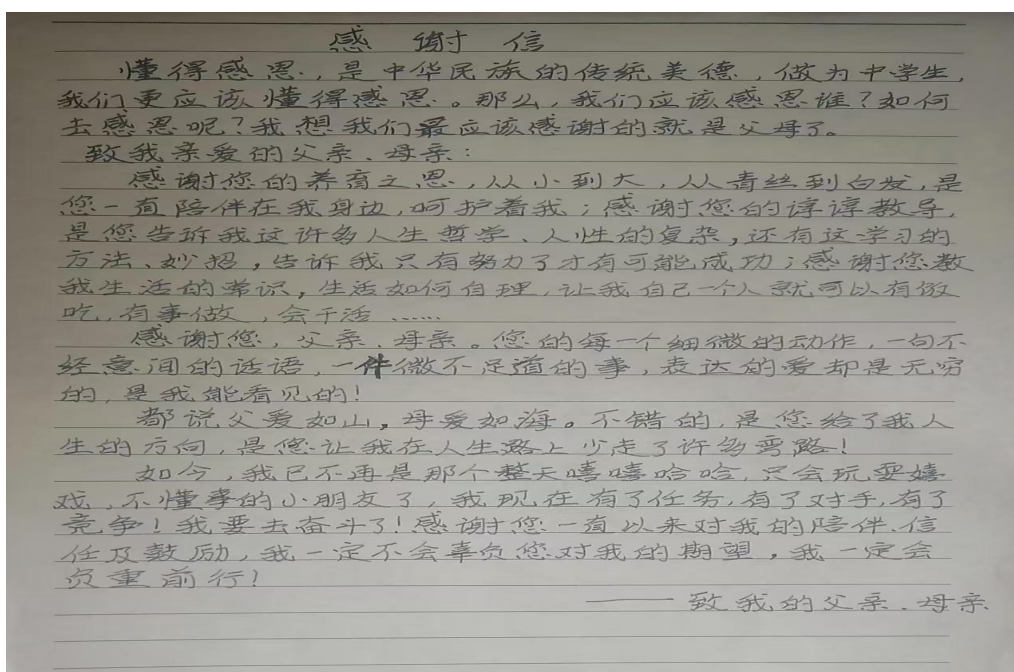 感谢信
懂得感恩，是中华民族的传统美德，做为中学生，
我们更应该懂得感恩。那么，我们应该感恩谁？如何
去感恩呢？我想我们最应该感谢的就是父母了。
致我亲爱的父亲、母亲：
感谢您的养育之恩，从小到大，从青丝到白发，是
您一直陪伴在我身边，呵护着我；感谢您的谆谆教导，
是您告诉我这许多人生哲学、人性的复杂，还有这学习的
方法、妙招，告诉我只有努力了才有可能成功；感谢您教
我生活的常识，生活如何自理，让我自己一个人就可以有饭
吃，有事做，会干活……
感谢您，父亲、母亲。您的每一个细微的动作，一句不
经意间的话语，一件微不足道的事，表达的爱却是无穷
的，是我能看见的！
都说父爱如山，母爱如海。不错的，是您给了我人
生的方向，是您让我在人生路上少走了许多弯路！
如今，我已不再是那个整天嘻嘻哈哈，只会玩耍嬉
戏，不懂事的小朋友了，我现在有了任务，有了对手，有了
竞争！我要去奋斗了！感谢您一直以来对我的陪伴、信
任及鼓励，我一定不会辜负您对我的期望，我一定会
负重前行！
——致我的父亲、母亲